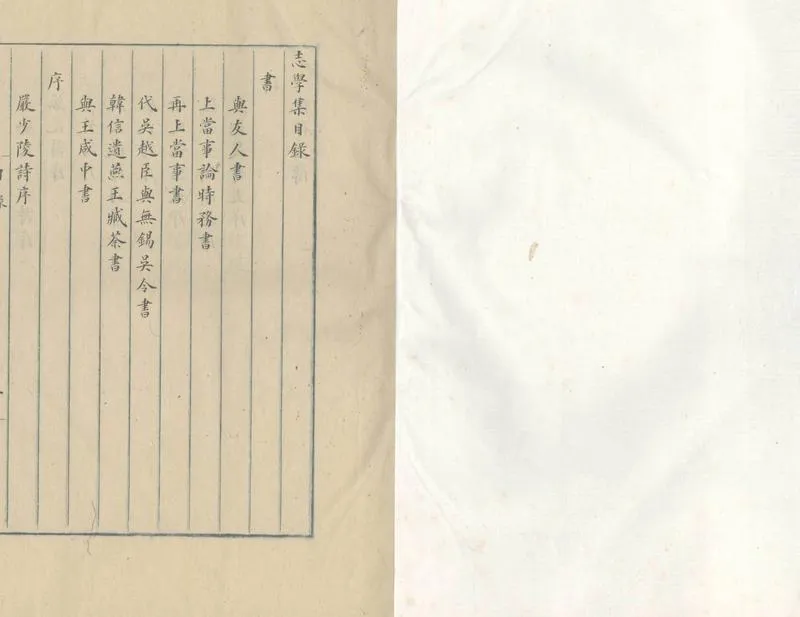 志學集目録
書
與友人書
上當事論時務書
再上當事書
代吳越臣與無錫吳令書
韓信遺燕王臧荼書
與王咸中書
序
嚴少陵詩序